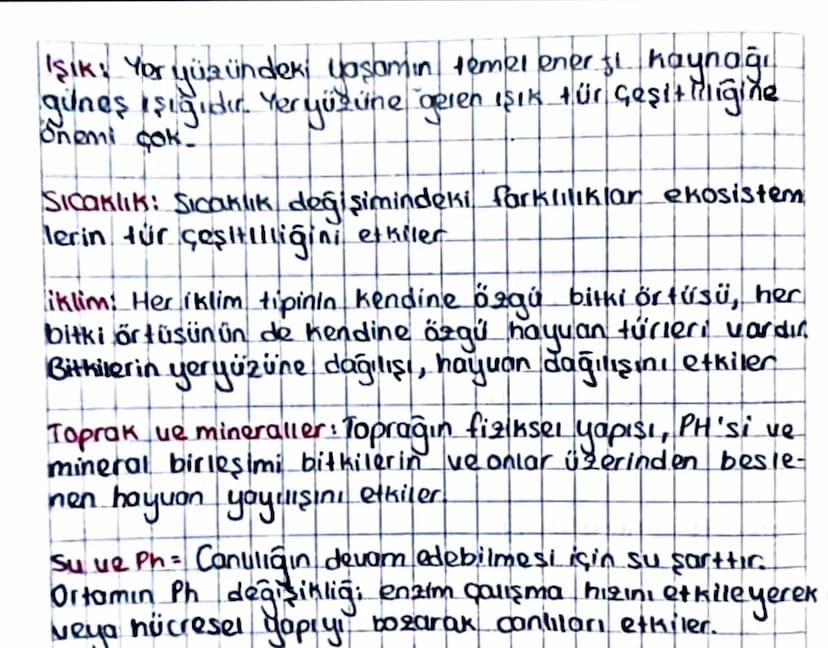 Işık: Yer yüzündeki yaşamın temel enerji kaynağı
güneş ışığıdır. Yer yüzüne gelen ışık tür çeşitliliğine
önemi çok.
Sıcaklık: Sıcaklık değişimindeki farklılıklar ekosistem
lerin tür çeşitliliğini etkiler
iklim: Her iklim tipinin kendine özgü bitki örtüsü, her
bitki örtüsünün de kendine özgü hayvan türleri vardır.
Bitkilerin yeryüzüne dağılışı, hayvan dağılışını etkiler
Toprak ve mineraller: Toprağın fiziksel yapısı, PH'si ve
mineral birleşimi bitkilerin ve onlar üzerinden besle-
nen hayvan yayılışını etkiler.
Su ve Ph = Canlılığın devam edebilmesi için su şarttır.
Ortamın Ph değişikliği enzim çalışma hızını etkileyerek
veya hücresel yapıyı bozarak canlıları etkiler.